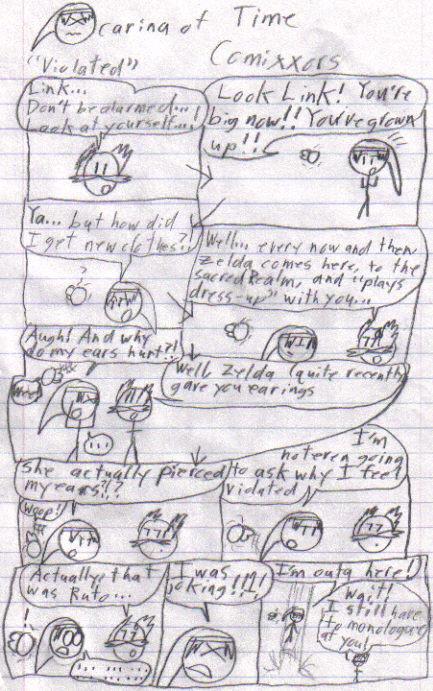 carina of Time
Comixxors
"Violated"
Link...
Don't be alarmed...!
Look at yourself...!
Look Link! You're
big now!! You've grown
up!!
Ya... but how did
I get new clothes?!
?
Well... every now and then,
Zelda comes here, to the
sacred Realm, and "plays
dress-up" with you...
Augh! And why
do my ears hurt?!
Well Zelda (quite recently)
gave you earings
...
She actually pierced
my ears?!?
Woop!
I'm
not even going
to ask why I feel
violated
Actually, that
was Ruto...
!
I was
joking!!!!
I'm outa here!
Wait!
I still have
to monologue
at you!